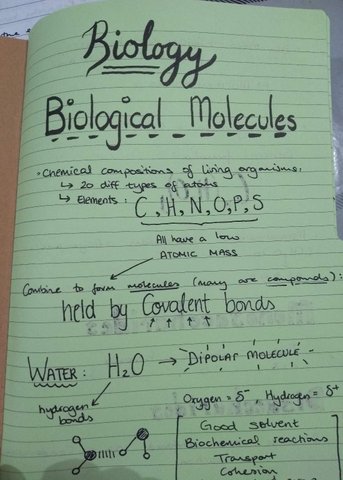 Biology
Biological Molecules
• Chemical compositions of living organisms:
↳ 20 diff types of atoms
↳ Elements : C, H, N, O, P, S
All have a low
ATOMIC MASS
Combine to form molecules (many are compounds):
held by Covalent bonds
WATER: H₂O → DIPOLAR MOLECULE
hydrogen
bonds
Oxygen = δ⁻, Hydrogen = δ⁺
Good solvent
Biochemical reactions
Transport
Cohesion